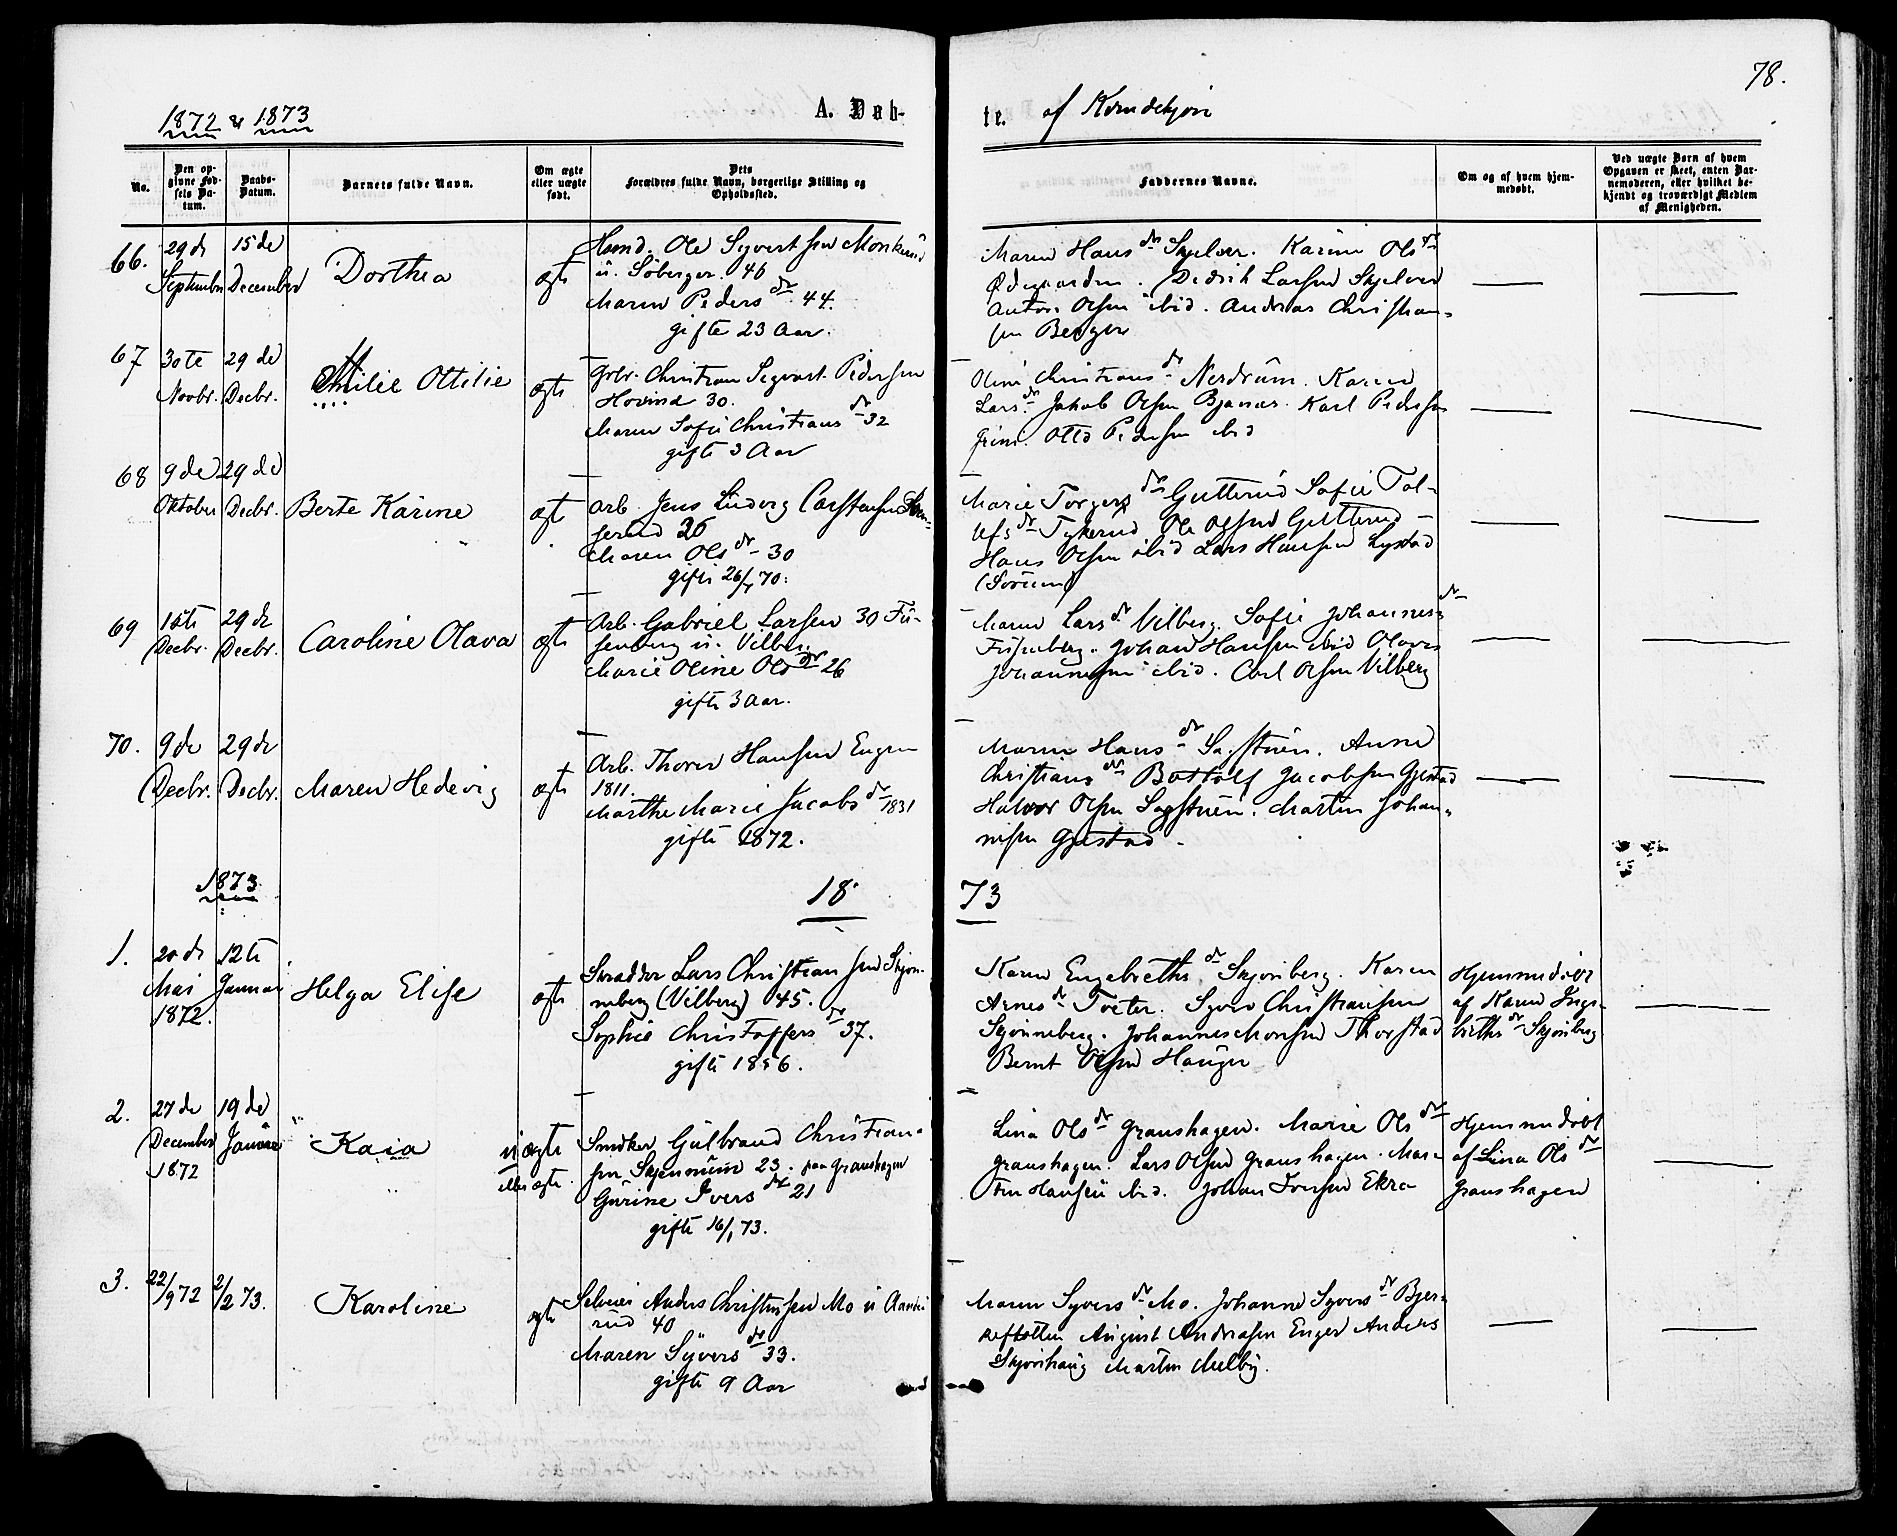 78.
1872 & 1873
A. Døb-
te. af Kvindekjøn
No.
Den op-
givne Fød-
sels Da-
tum.
Daabs-
Datum.
Barnets fulde Navn.
Om ægte
eller uægte
født.
Dets
Forældres fulde Navn, borgerlige Stilling og
Opholdssted.
Faddernes Navne.
Om og af hvem hjem-
medøbt.
Ved uægte Børn af hvem
Opgaven er skeet, enten Bar-
nemoderen, eller hvilket be-
kjendt og troværdigt Medlem
af Menigheden.
66. 29de 15de
September December
Dorthea
ægte
Ole Syvertsen
u. Søberger. 46
Maren Peders dr 44.
gifte 23 Aar.
Maren Hans dr Karine Ols dr
Ødegaarden. Didrik Larsen
Anton Olsen ibid. Andreas Christian-
sen Berger
67 30te 29de
Novbr. Decbr.
Emilie Ottilie
ægte
Christian Sigvart Pedersen
Hovind 30.
Maren Sofie Christians dr 32
gifte 3 Aar
Oline Christians dr Nerdrum. Karen
Lars dr Jakob Olsen Karl Pedersen
Otto Pedersen ibid
68 9de 29de
Oktober Decbr.
Berte Karine
ægte
Arb. Jens Ludvig Carstensen
serud 36
Maren Ols dr 30
gifte 26/ 70.
Marie Torgers dr Gutterud Sofie Tol-
lefs dr Ole Olsen Gutterud
Hans Olsen ibid Lars Hansen Lystad
(Sørum)
69 1ste 29de
Decbr. Decbr.
Caroline Olava
ægte
Arb. Gabriel Larsen 30 Fu-
senberg u. Vilberg
Marie Oline Ols dr 26
gifte 3 Aar.
Maren Lars dr Vilberg. Sofie Johannes dr
Fusenberg. Johan Hansen ibid Olaves
Johannesen ibid. Carl Olsen Vilberg
70. 9de 29de
Decbr. Decbr.
Maren Hedevig
ægte
Arb. Thorer Hansen Engen
1811.
Marthe Marie Jacobs dr 1831
gifte 1872.
Maren Hans dr Sagstuen. Anne
Christians dr Bottolf Jacobsen Gjestad
Halvor Olsen Sagstuen. Martin Johan-
nesen Gjestad.
1873
18 73
1. 20de 12te
Mai Januar
1872.
Helga Elise
ægte
Skrædder Lars Christiansen Skjøn-
neberg (Vilberg) 45.
Sophie Christoffers dr 37.
gifte 1856.
Karen Engebreths dr Skjønberg. Karen
Arnes dr Toeter. Syver Christiansen
Skjønneberg. Johannes Monsen Thorstad
Bernt Olsen Hauger
Hjemmedøbt
af Karen Inge-
breths dr Skjønberg
2. 27de 19de
December Januar
1872
Kaia
uægte
eller ægte.
Snedker Gulbrand Christian-
sen 23. paa Granshagen
Gurine Ivers dr 21
gifte 16/1 73.
Lina Ols dr Granshagen. Marie Ols dr
Granshagen. Lars Olsen Granshagen. Mar-
tin Hansen ibid. Johan Iversen Ekra
Hjemmedøbt
af Lina Ols dr
Granshagen
3. 22/9 72 2/2 73.
Karoline
ægte
Selveier Anders Christensen Mo u
rud 40
Maren Syvers dr 33.
gifte 9 Aar
Maren Syvers dr Mo. Johanne Syvers dr Bjer-
August Andreasen Enger Anders
Skjønhaug Martin Melby.